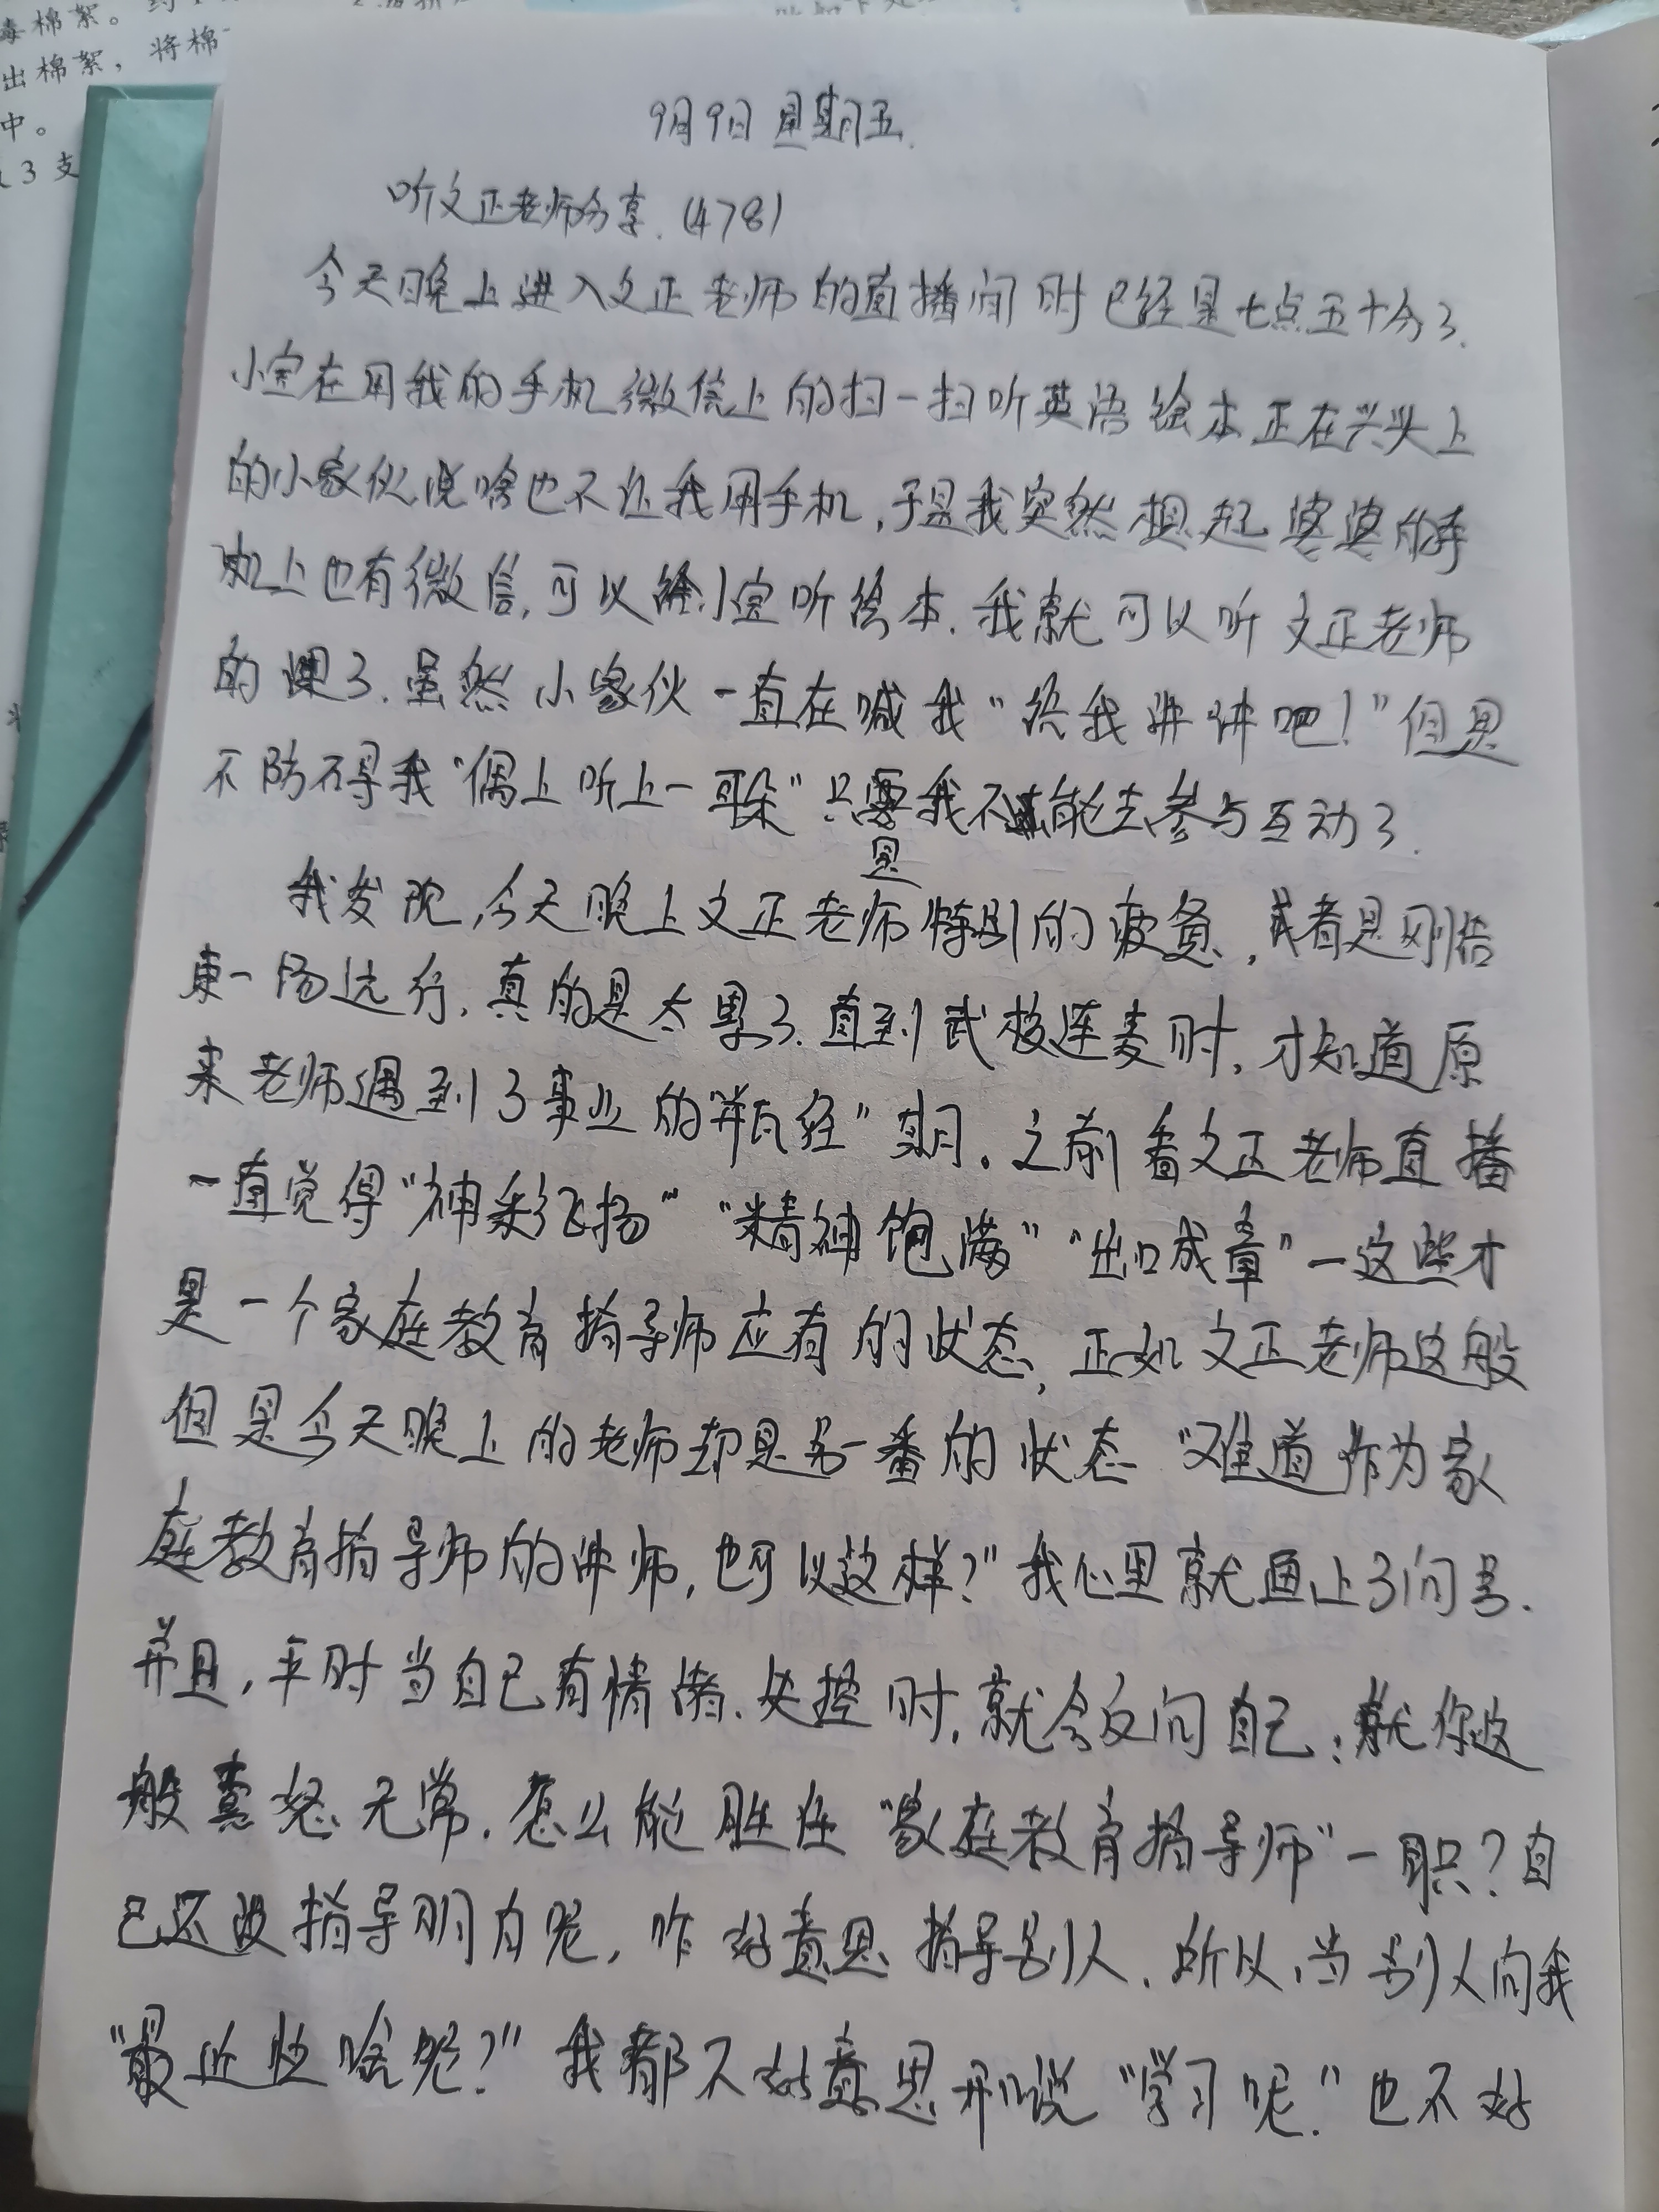 毒棉絮。
出棉絮，将棉
中。
3支
9月9日 星期五.
听文正老师分享.(478)
今天晚上进入文正老师的直播间时已经是七点五十分了.
小宝在用我的手机微信上的扫一扫听英语绘本,正在兴头上
的小家伙说啥也不让我用手机,于是我突然想起婆婆的手
机上也有微信,可以给小宝听绘本.我就可以听文正老师
的课了.虽然小家伙一直在喊我“给我讲讲吧!”但是
不防碍我“偶上听上一耳朵”只是我不能去参与互动了.
我发现,今天晚上文正老师特别的疲惫,或者是刚结
束一场远行,真的是太累了.直到武校连麦时,才知道原
来老师遇到了事业的“瓶经”期。之前看文正老师直播
一直觉得“神采飞扬”“精神饱满”“出口成章”一这些才
是一个家庭教育指导师应有的状态,正如文正老师这般
但是今天晚上的老师却是另一番的状态“难道作为家
庭教育指导师的讲师,也可以这样?”我心里就画上了问号.
并且,平时当自己有情绪.失控时,就会反问自己:就你这
般喜怒无常.怎么能胜任“家庭教育指导师”一职?自
己还没指导明白呢,咋好意思指导别人.所以,当别人问我
“最近忙啥呢?”我都不好意思开口说“学习呢.”也不好